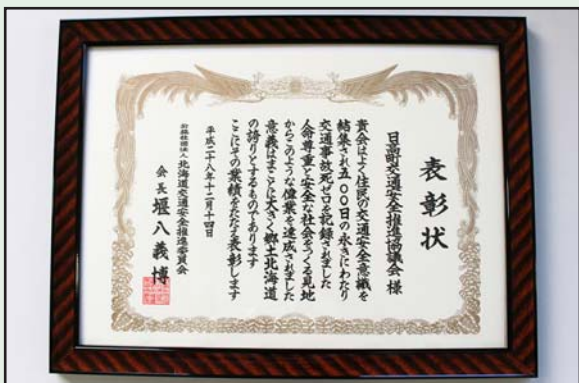 表彰状
日高町交通安全推進協議会 様
貴会はよく住民の交通安全意識を
結集され五〇〇日の永きにわたり
交通事故死ゼロを記録されました
人命尊重と安全な社会をつくる見地
からこのような偉業を達成されました
意義はまことに大きく郷土北海道
の誇りとするものであります
ここにその業績をたたえ表彰します
平成二十八年十二月十四日
公益社団法人 北海道交通安全推進委員会
会長 堰八義博